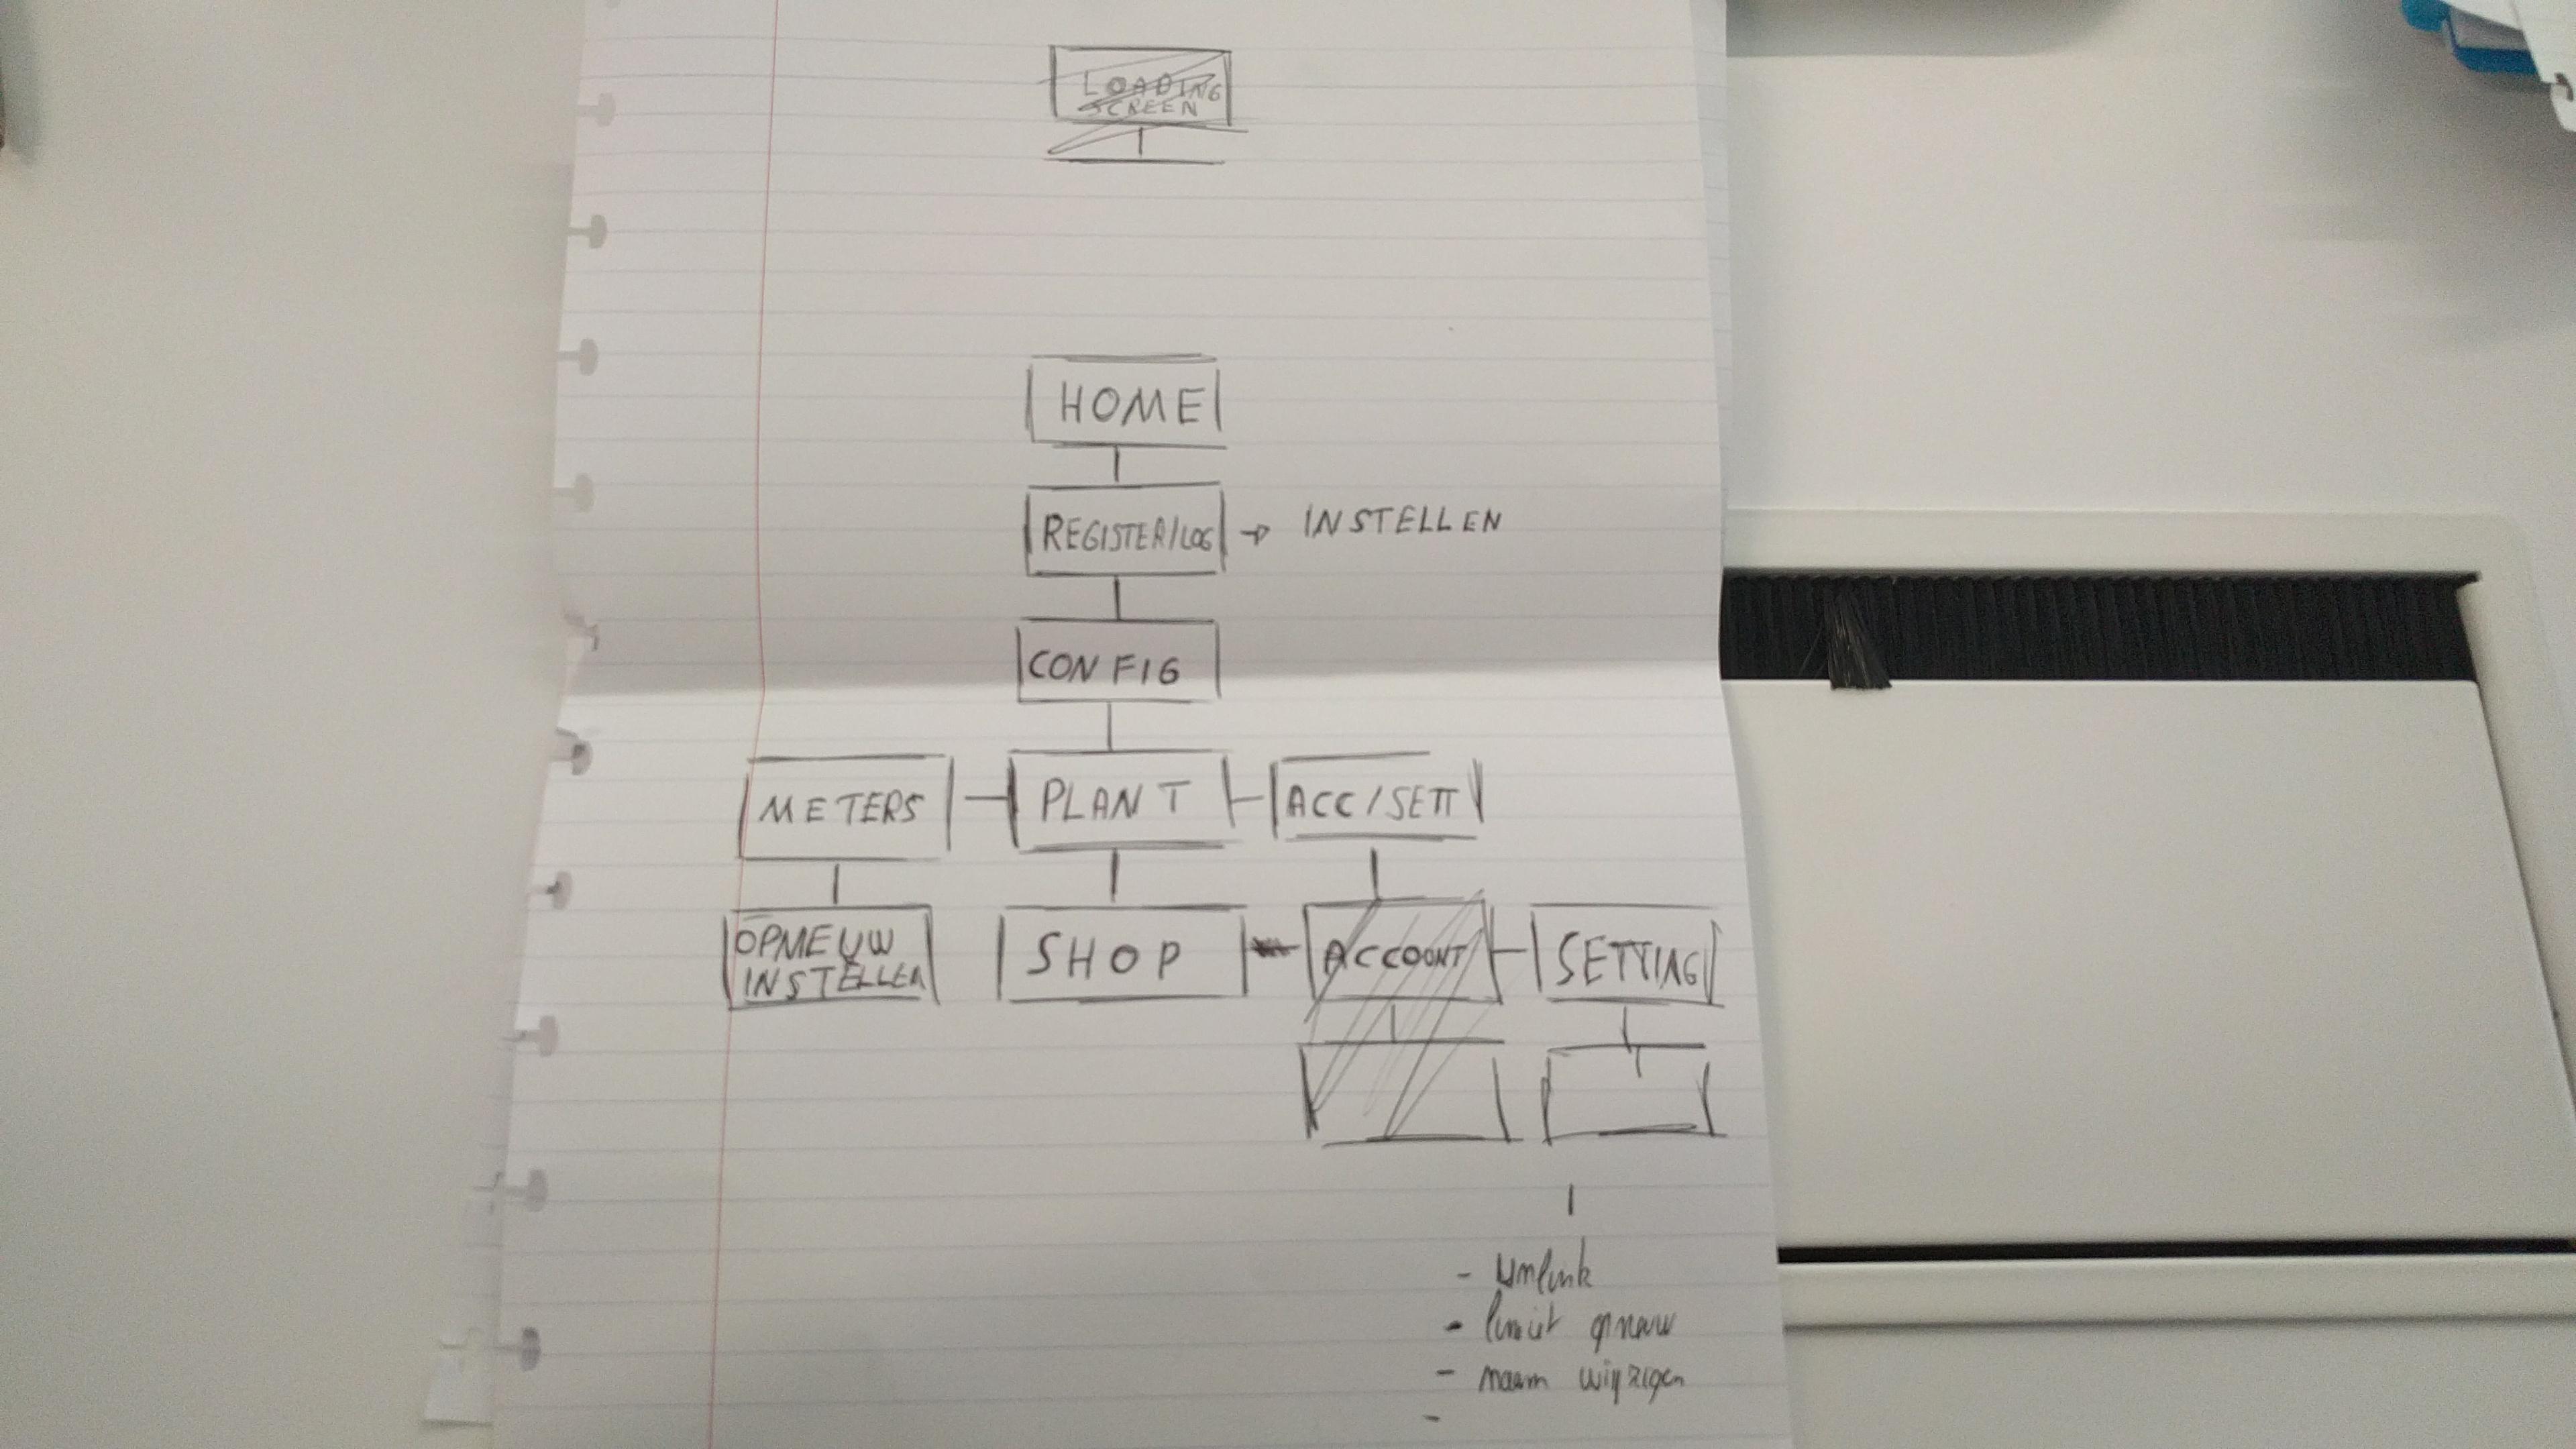 LOADING
SCREEN
HOME
REGISTER/LOG → INSTELLEN
CONFIG
METERS PLANT ACC/SETT
OPNIEUW
INSTELLEN
SHOP
ACCOUNT
SETTING
- Unlink
- limiet opnieuw
- naam wijzigen
-